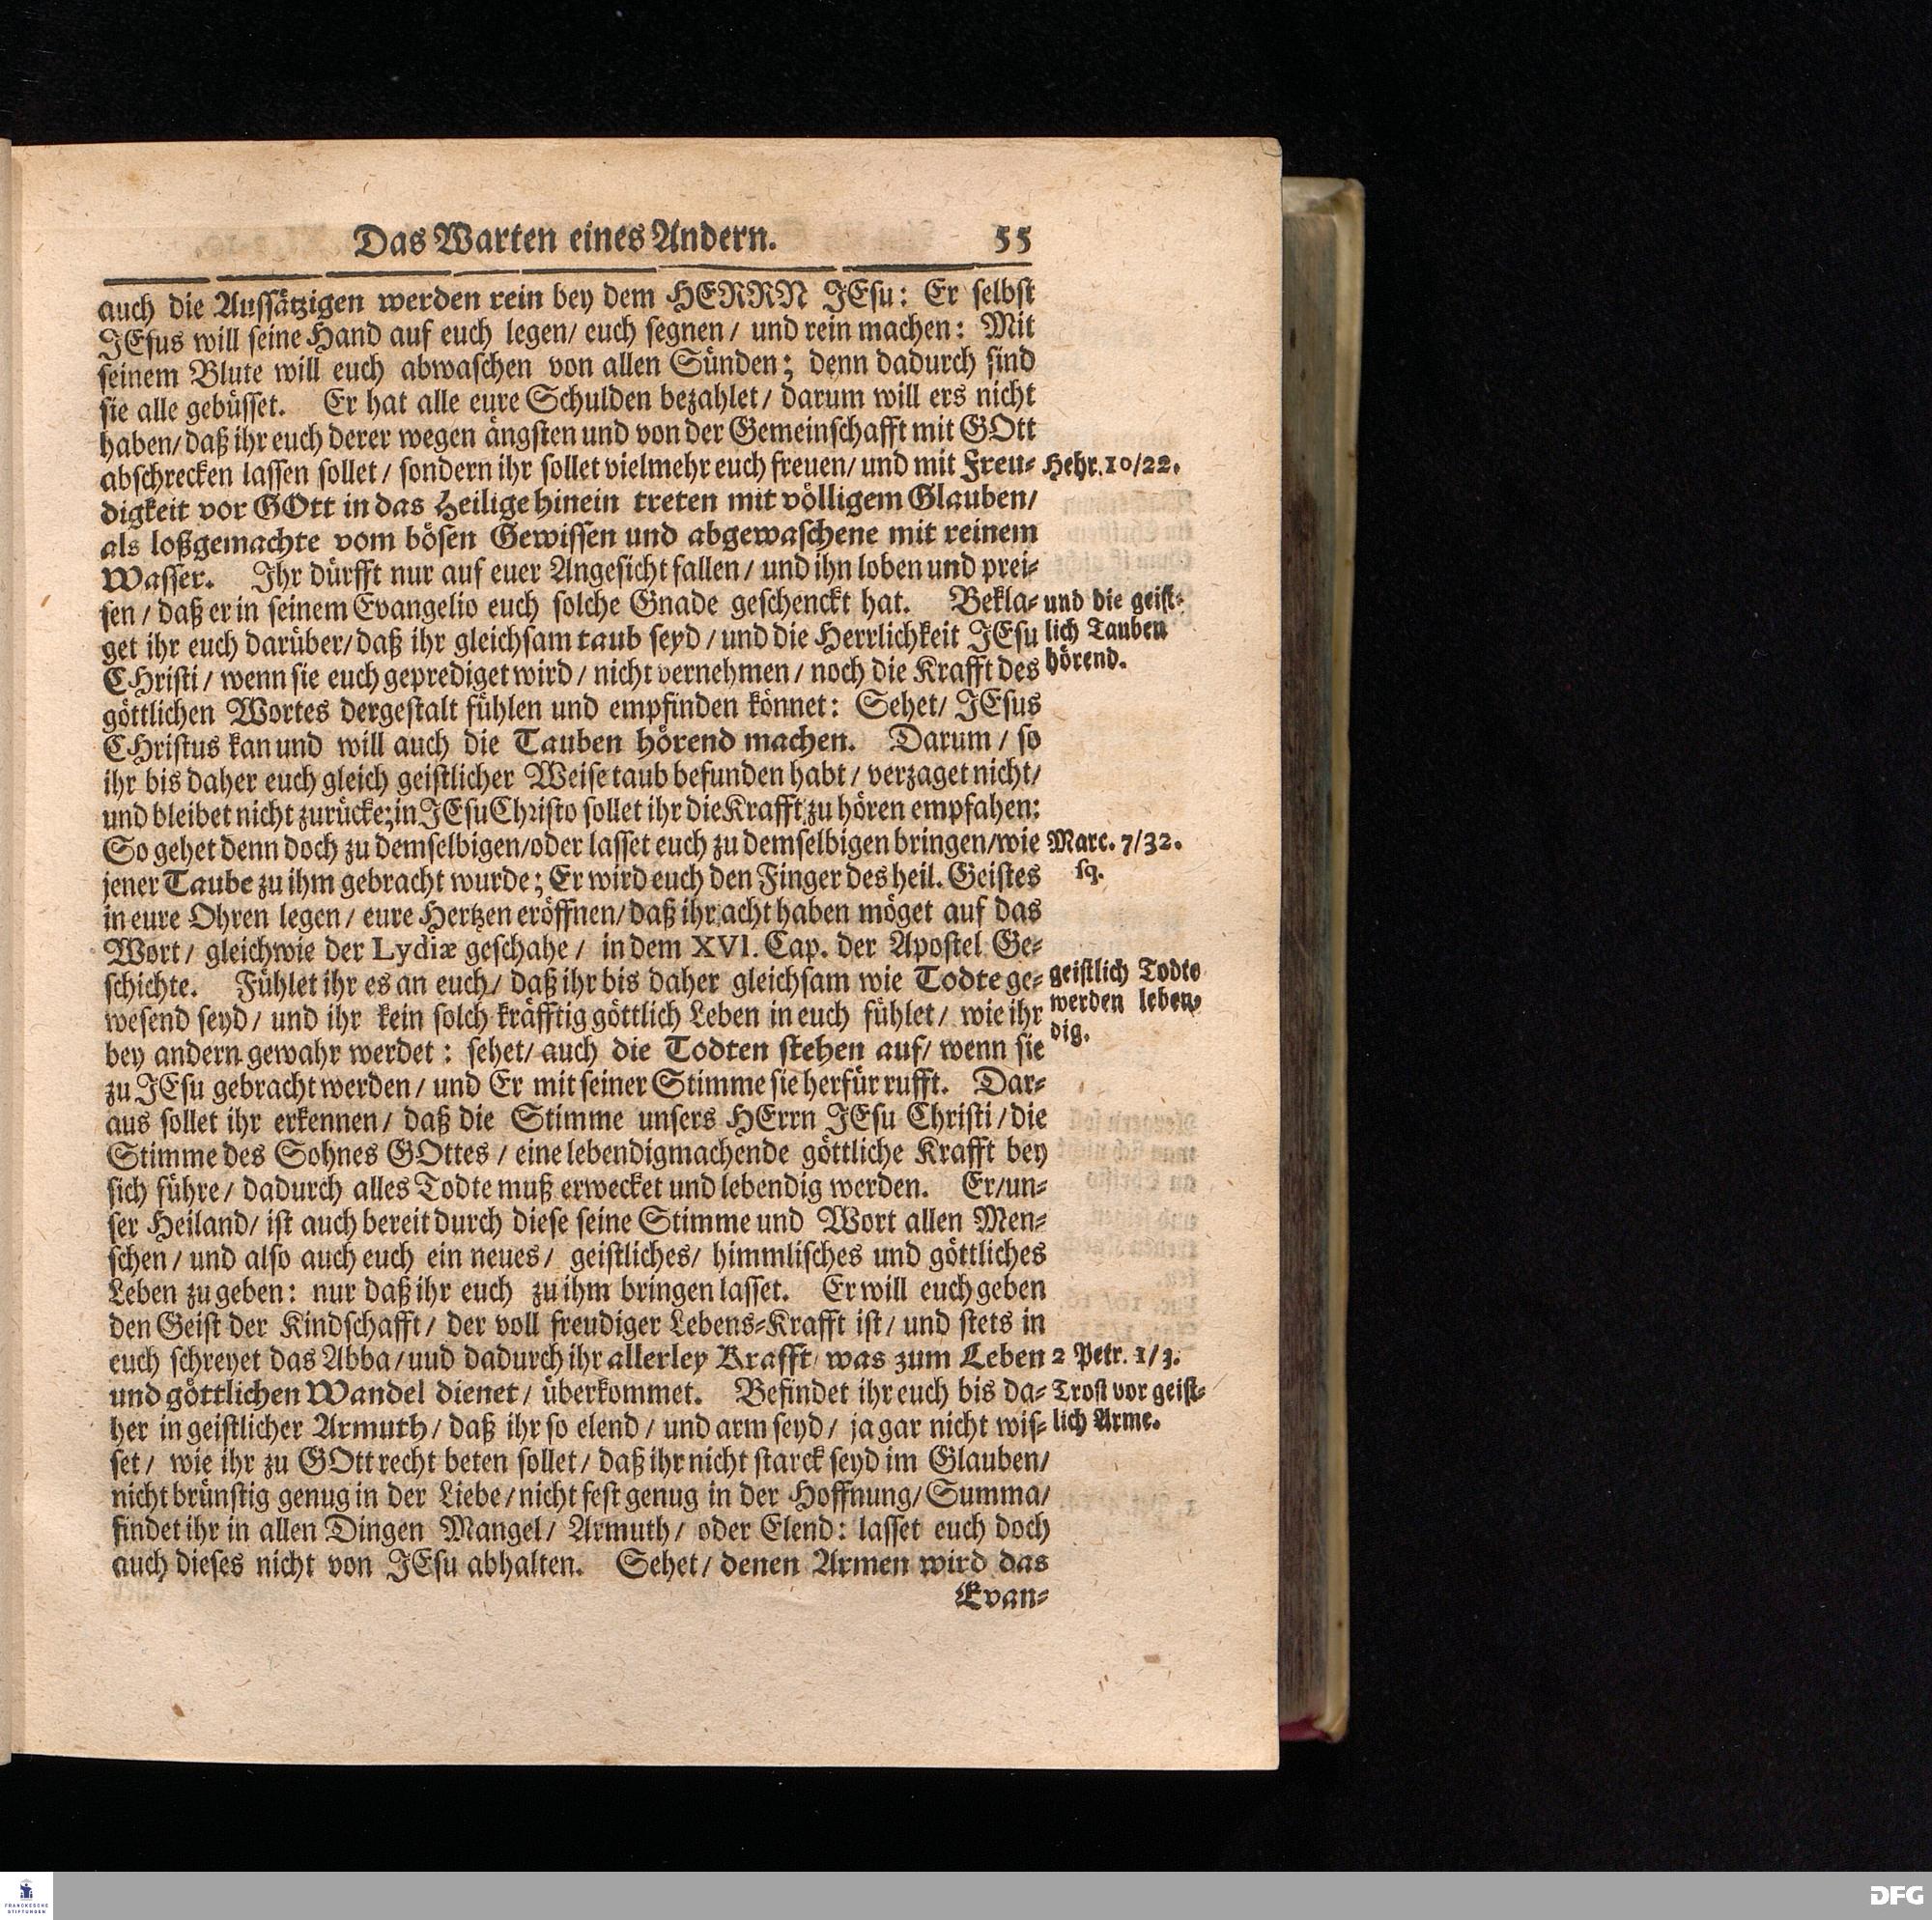 Das Warten eines Andern. 55
auch die Aussätzigen werden rein bey dem HERRN JEsu: Er selbst
JEsus will seine Hand auf euch legen/ euch segnen/ und rein machen: Mit
seinem Blute will euch abwaschen von allen Sünden; denn dadurch sind
sie alle gebüsset. Er hat alle eure Schulden bezahlet/ darum will ers nicht
haben/ daß ihr euch derer wegen ängsten und von der Gemeinschafft mit GOtt
abschrecken lassen sollet/ sondern ihr sollet vielmehr euch freuen/ und mit Freu-
Hebr. 10/22.
digkeit vor GOtt in das Heilige hinein treten mit völligem Glauben/
als loßgemachte vom bösen Gewissen und abgewaschene mit reinem
Wasser. Ihr dürfft nur auf euer Angesicht fallen/ und ihn loben und prei-
sen/ daß er in seinem Evangelio euch solche Gnade geschenckt hat. Bekla-
und die geist-
get ihr euch darüber/ daß ihr gleichsam taub seyd/ und die Herrlichkeit JEsu
lich Tauben
CHristi/ wenn sie euch geprediget wird/ nicht vernehmen/ noch die Krafft des
hörend.
göttlichen Wortes dergestalt fühlen und empfinden könnet: Sehet/ JEsus
CHristus kan und will auch die Tauben hörend machen. Darum/ so
ihr bis daher euch gleich geistlicher Weise taub befunden habt/ verzaget nicht/
und bleibet nicht zurücke; in JEsu Christo sollet ihr die Krafft zu hören empfahen:
So gehet denn doch zu demselbigen/ oder lasset euch zu demselbigen bringen/ wie
Marc. 7/32.
jener Taube zu ihm gebracht wurde; Er wird euch den Finger des heil. Geistes
sq.
in eure Ohren legen/ eure Hertzen eröffnen/ daß ihr acht haben möget auf das
Wort/ gleichwie der Lydiæ geschahe/ in dem XVI. Cap. der Apostel Ge-
schichte. Fühlet ihr es an euch/ daß ihr bis daher gleichsam wie Todte ge-
geistlich Todte
wesend seyd/ und ihr kein solch kräfftig göttlich Leben in euch fühlet/ wie ihr
werden leben-
bey andern gewahr werdet: sehet/ auch die Todten stehen auf/ wenn sie
dig.
zu JEsu gebracht werden/ und Er mit seiner Stimme sie herfür rufft. Dar-
aus sollet ihr erkennen/ daß die Stimme unsers HErrn JEsu Christi/ die
Stimme des Sohnes GOttes/ eine lebendigmachende göttliche Krafft bey
sich führe/ dadurch alles Todte muß erwecket und lebendig werden. Er/ un-
ser Heiland/ ist auch bereit durch diese seine Stimme und Wort allen Men-
schen/ und also auch euch ein neues/ geistliches/ himmlisches und göttliches
Leben zu geben: nur daß ihr euch zu ihm bringen lasset. Er will euch geben
den Geist der Kindschafft/ der voll freudiger Lebens-Krafft ist/ und stets in
euch schreyet das Abba/ uud dadurch ihr allerley Krafft/ was zum Leben
2 Petr. 1/3.
und göttlichen Wandel dienet/ überkommet. Befindet ihr euch bis da-
Trost vor geist-
her in geistlicher Armuth/ daß ihr so elend/ und arm seyd/ ja gar nicht wis-
lich Arme.
set/ wie ihr zu GOtt recht beten sollet/ daß ihr nicht starck seyd im Glauben/
nicht brünstig genug in der Liebe/ nicht fest genug in der Hoffnung/ Summa/
findet ihr in allen Dingen Mangel/ Armuth/ oder Elend: lasset euch doch
auch dieses nicht von JEsu abhalten. Sehet/ denen Armen wird das
Evan-
FRANCKESCHE
STIFTUNGEN
DFG